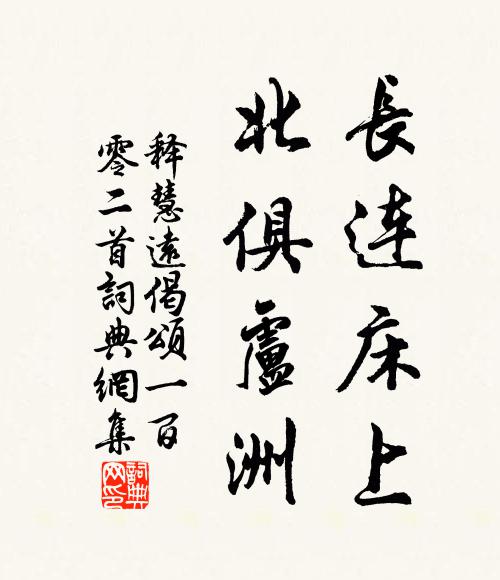 長连床上
北俱廬洲
释慧遠偈頌一百
零二首詞典網集
詞典網印